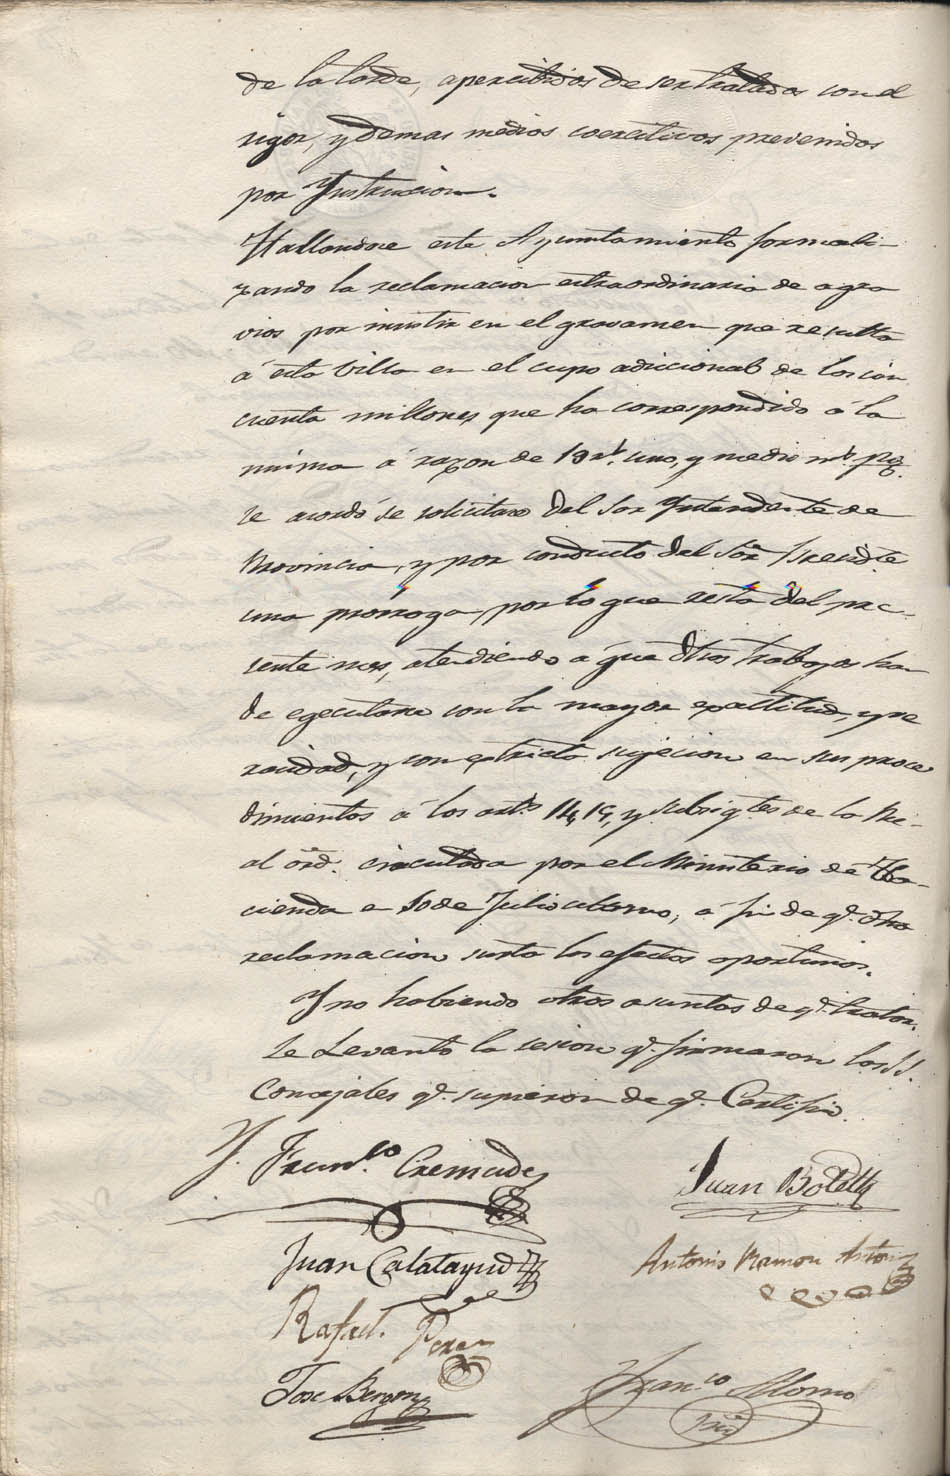 de la tarde, apercibidos de ser tratados con el
rigor, y demas medios coercitivos prevenidos
por Ynstruccion.
Hallandose este Ayuntamiento formali-
zando la reclamacion extraordinaria de agra
vios por insistir en el gravamen que resulta
á esta Villa en el cupo adiccional de los cin
cuenta millones, que ha correspondido á la
misma á razon de 19 rs. uno, y medio ms. pg.
se acordó se solicitase del Sor Yntendente de
Provincia, y por conducto del Sor Presidte
una prorroga, por lo que resta del pre-
sente mes, atendiendo a que dhos trabajos han
de egecutarse con la mayor exactitud, y ve
racidad, y con extricta sujecion en sus proce
dimientos á los arts. 14, 15, y subsigtes de la Re-
al ord. circulada por el Ministerio de Ha-
cienda en 10 de Julio ultimo, á fin de q. dha
reclamacion surta los efectos oportunos.
Y no habiendo otros asuntos de q. tratar,
se Levantó la sesion q. firmaron los SS.
Concejales q. supieron de q. Certifico.
Y. Franco. Cremades
Juan Botella
Juan Calatayud
Antonio Ramon Anton
Rafael Perez
Jose Bergon
Franco Alonso
Srio